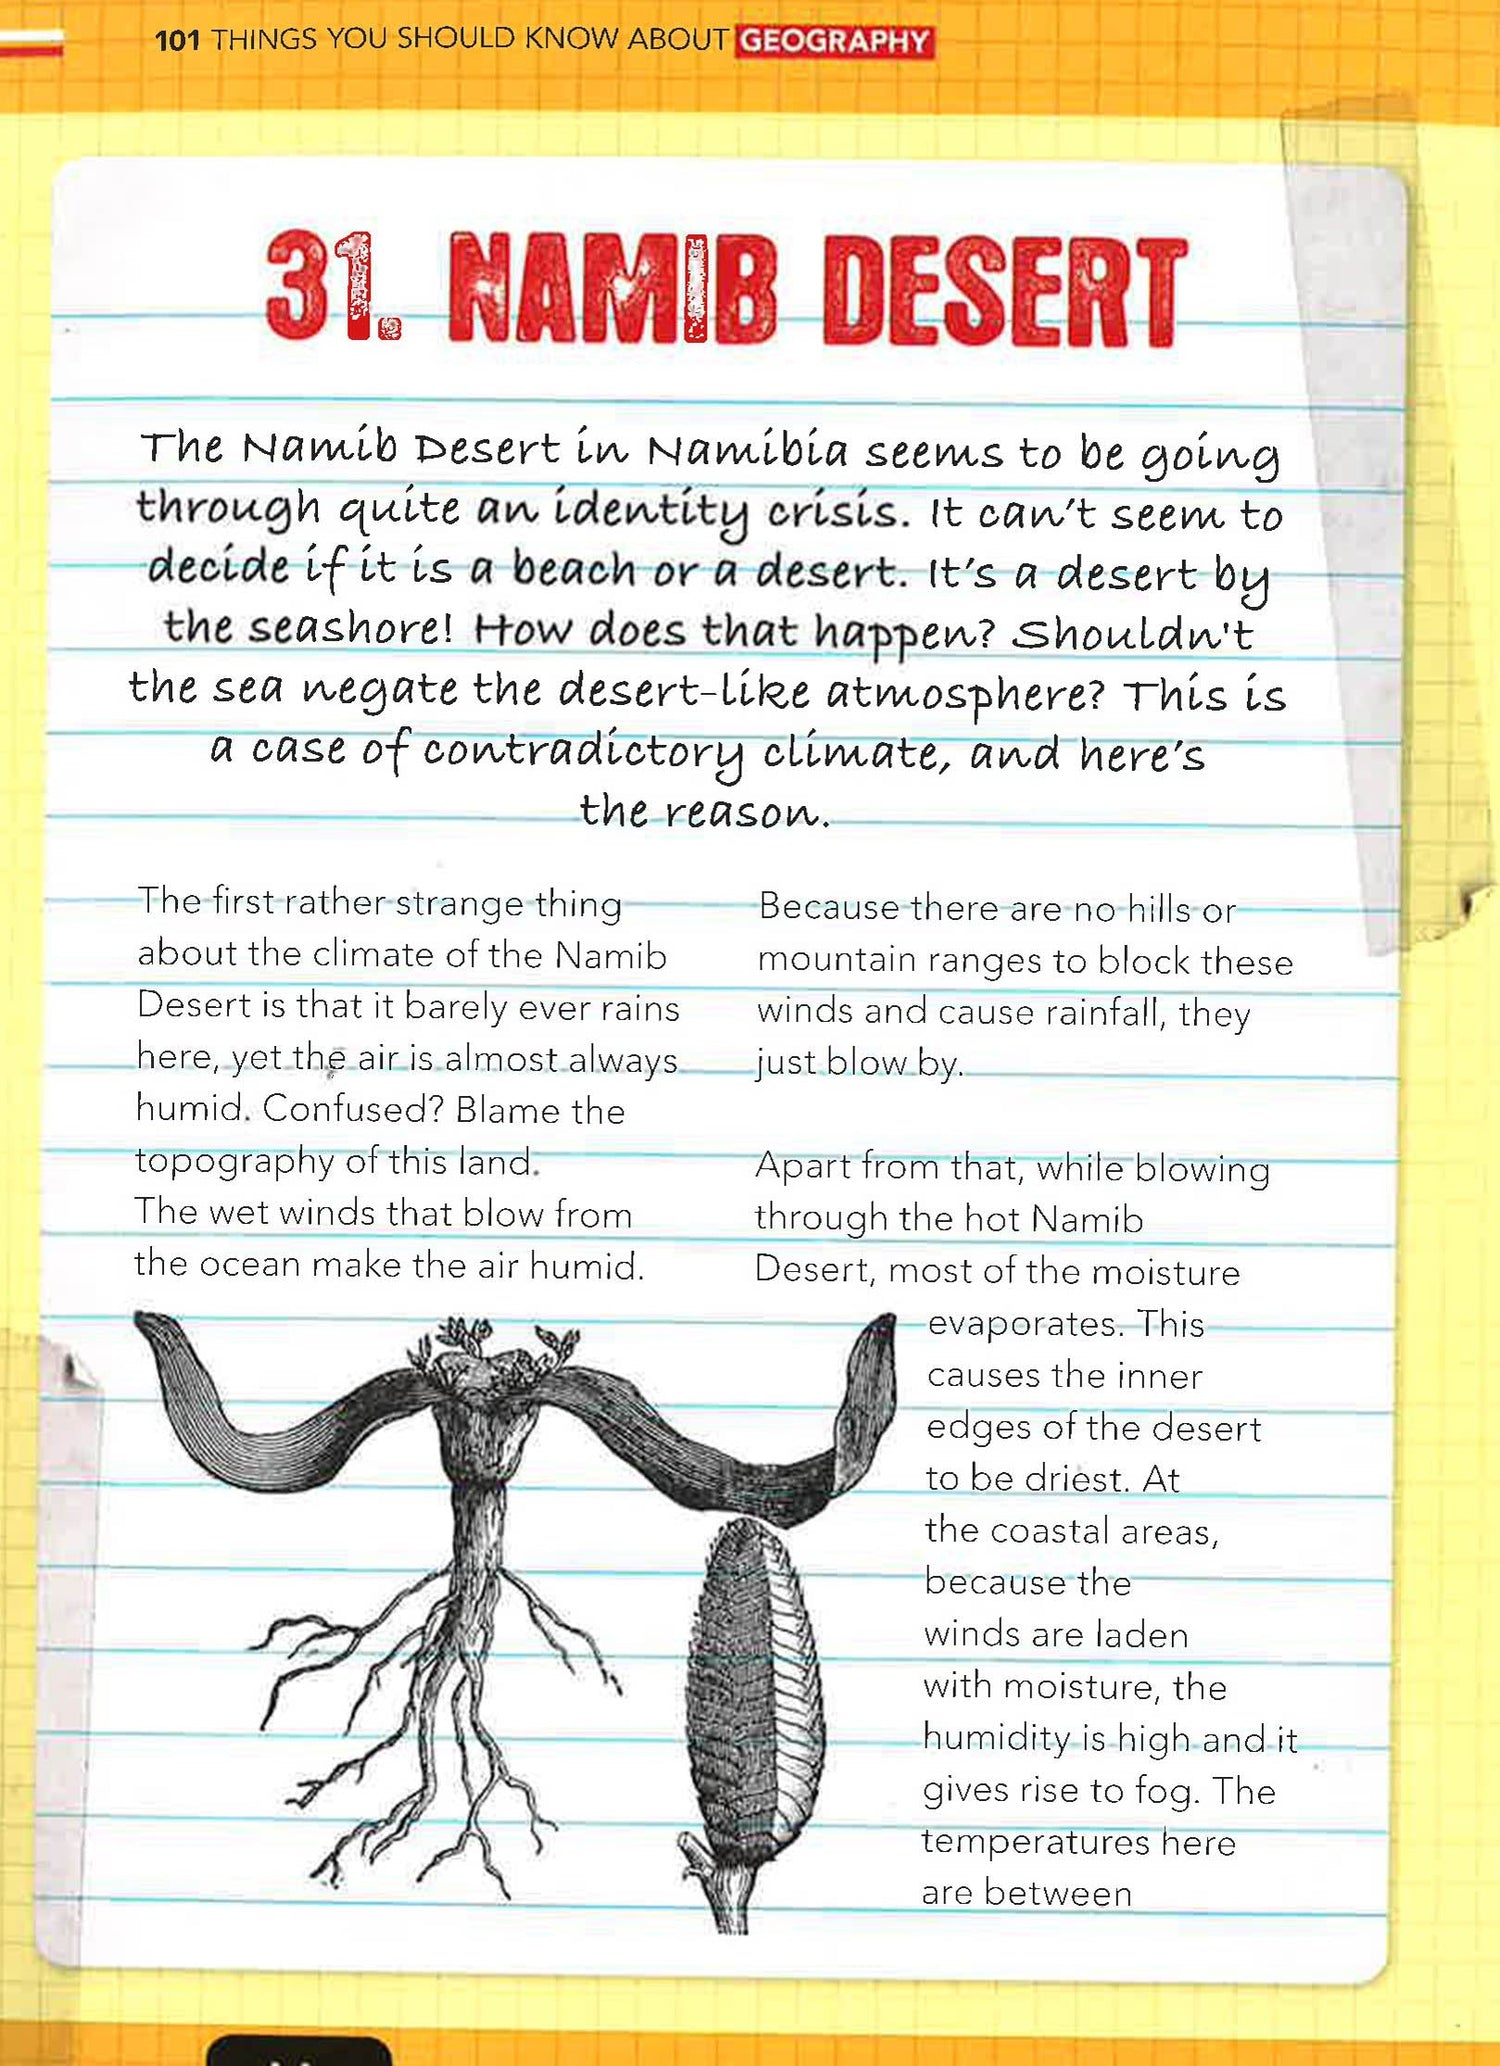 101 THINGS YOU SHOULD KNOW ABOUT GEOGRAPHY
31. NAMIB DESERT
The Namib Desert in Namibia seems to be going
through quite an identity crisis. It can't seem to
decide if it is a beach or a desert. It's a desert by
the seashore! How does that happen? Shouldn't
the sea negate the desert-like atmosphere? This is
a case of contradictory climate, and here's
the reason.
The first rather strange thing
about the climate of the Namib
Desert is that it barely ever rains
here, yet the air is almost always
humid. Confused? Blame the
topography of this land.
The wet winds that blow from
the ocean make the air humid.
Because there are no hills or
mountain ranges to block these
winds and cause rainfall, they
just blow by.
Apart from that, while blowing
through the hot Namib
Desert, most of the moisture
evaporates. This
causes the inner
edges of the desert
to be driest. At
the coastal areas,
because the
winds are laden
with moisture, the
humidity is high and it
gives rise to fog. The
temperatures here
are between